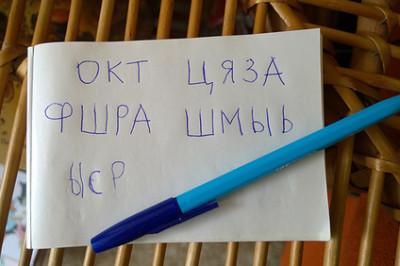 ОКТ ЦЯЗА
ФШРА ШМЫЬ
ЫСР